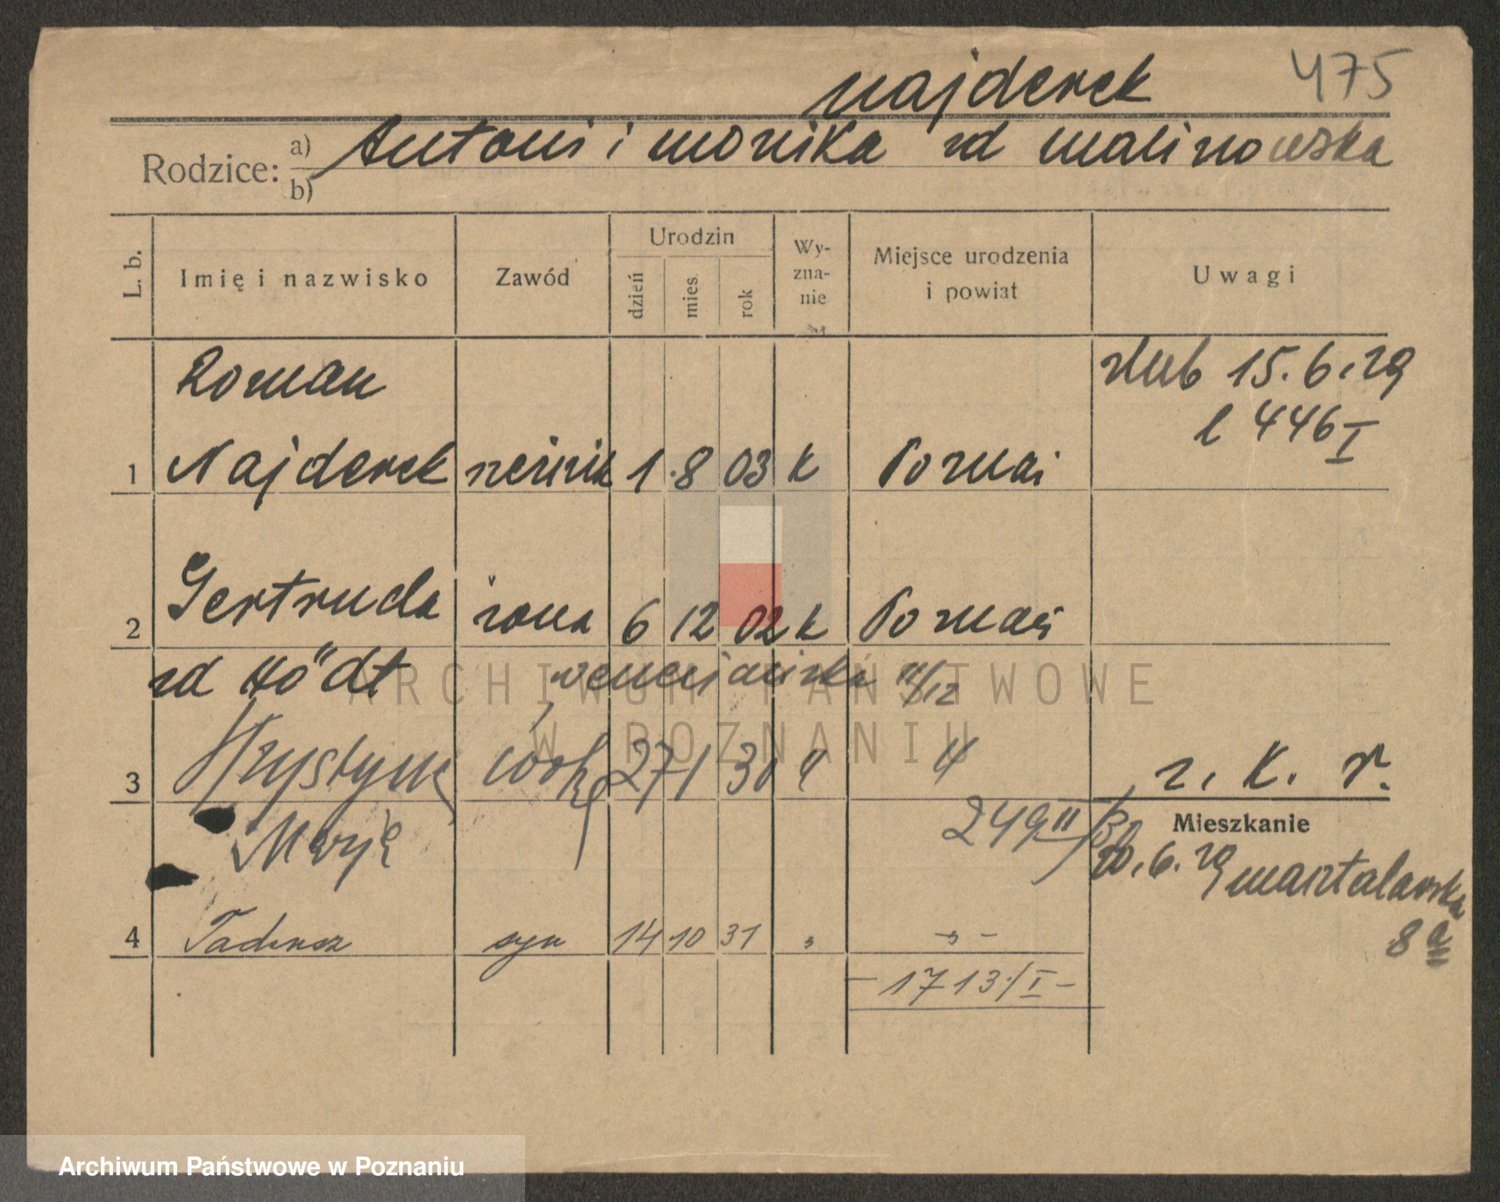 Najderek 475
Rodzice: a) Antoni i Monika zd Malinowska
b)
L. b.
Imię i nazwisko
Zawód
Urodzin
dzień
mies
rok
Wy-
zna-
nie
Miejsce urodzenia
i powiat
Uwagi
Roman
ślub 15.6.29
l 446 I
1 Najderek rzeźnik 1 8 03 k Poznań
2 Gertruda żona 6 12 02 k Poznań
zd Hödt Wenecjańska 11/12
3 Krystyna córka 27 1 30 " "
r. k. r.
Marja
249 II/30
Mieszkanie
20.6.29 Masztalarska
8 a
4 Tadeusz syn 14 10 31 " - " -
- 1713/I -
ARCHIWUM PAŃSTWOWE
W POZNANIU
Archiwum Państwowe w Poznaniu